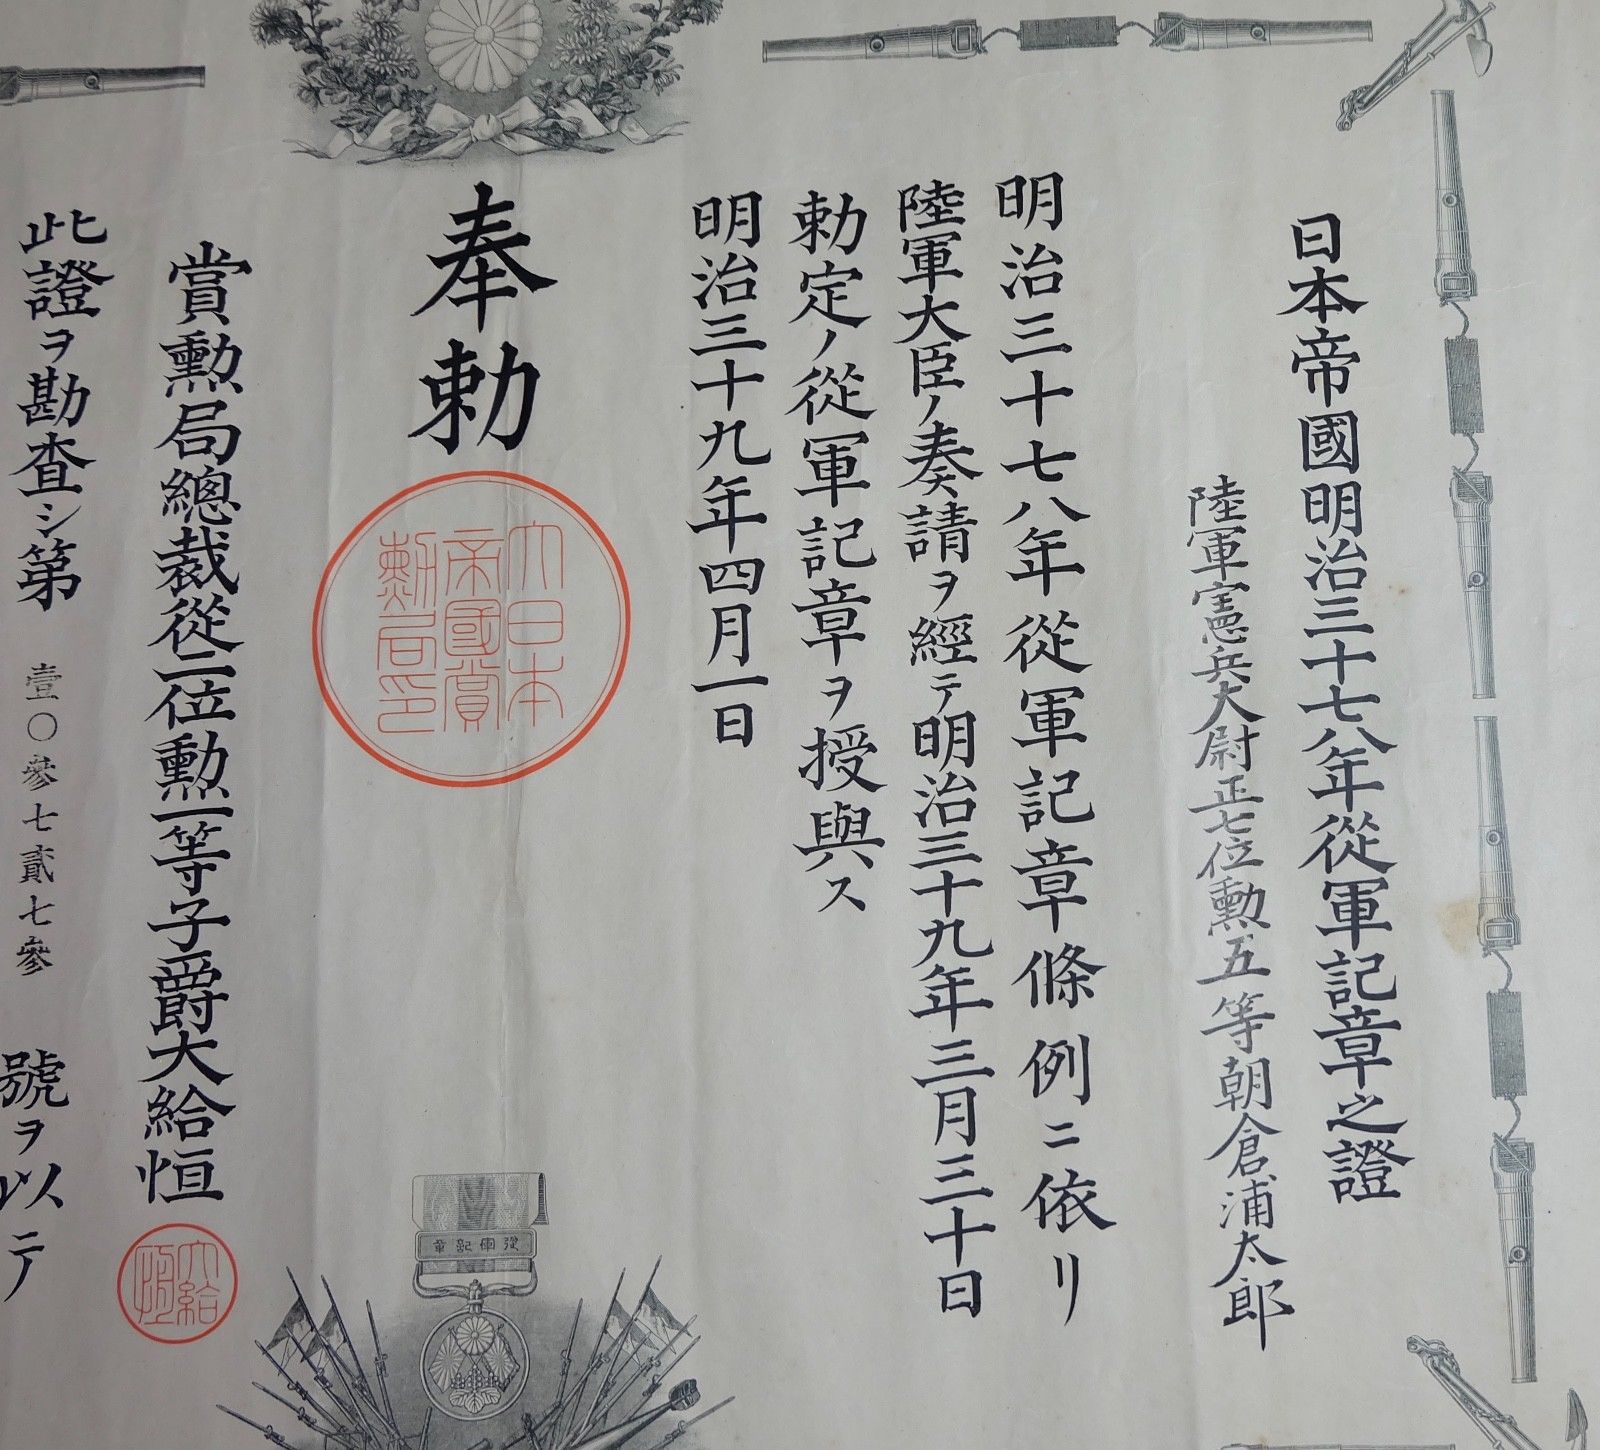 日本帝國明治三十七八年從軍記章之證
陸軍憲兵大尉正七位勲五等朝倉浦太郎
明治三十七八年從軍記章條例ニ依リ
陸軍大臣ノ奏請ヲ經テ明治三十九年三月三十日
勅定ノ從軍記章ヲ授與ス
明治三十九年四月一日
奉勅
大日本
帝國賞
勲局印
從軍記章
賞勲局總裁從二位勲一等子爵大給恒
大給
恒
此證ヲ勘査シ第壹〇參七貳七參號ヲ以テ